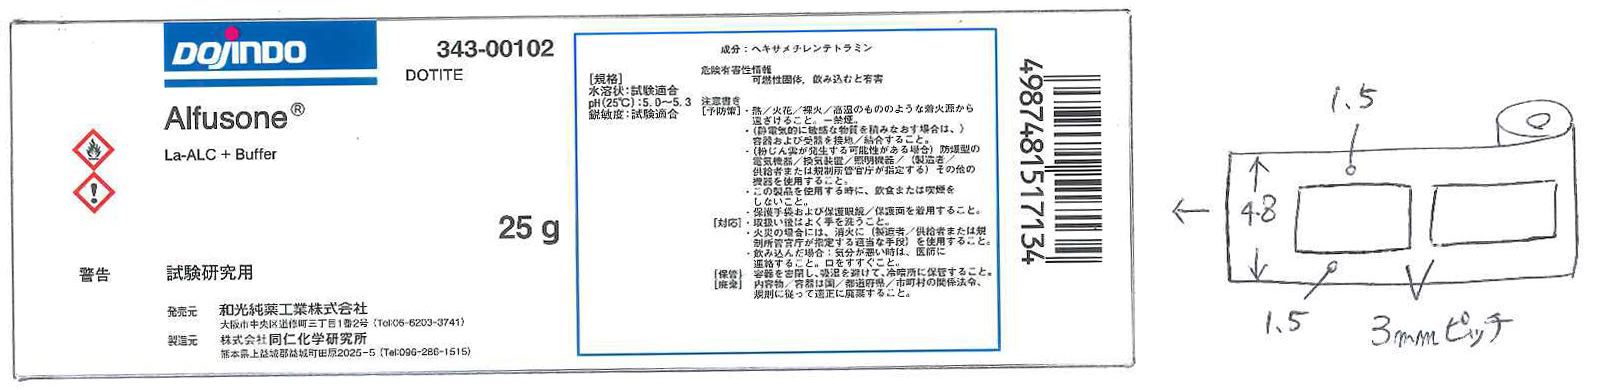 DOJINDO
343-00102
DOTITE
Alfusone®
La-ALC + Buffer
25 g
警告
試験研究用
発売元 和光純薬工業株式会社
大阪市中央区道修町三丁目1番2号 (Tel:06-6203-3741)
製造元 株式会社同仁化学研究所
熊本県上益城郡益城町田原2025-5 (Tel:096-286-1515)
[規格]
水溶状:試験適合
pH(25℃):5.0〜5.3
鋭敏度:試験適合
成分:ヘキサメチレンテトラミン
危険有害性情報
可燃性固体, 飲み込むと有害
注意書き
[予防策]・熱/火花/裸火/高温のもののような着火源から
遠ざけること。ー禁煙。
・(静電気的に敏感な物質を積みなおす場合は、)
容器および受器を接地/結合すること。
・(粉じん雲が発生する可能性がある場合) 防爆型の
電気機器/換気装置/照明機器/ (製造者/
供給者または規制所管官庁が指定する) その他の
機器を使用すること。
・この製品を使用する時に、飲食または喫煙を
しないこと。
・保護手袋および保護眼鏡/保護面を着用すること。
[対応]・取扱い後はよく手を洗うこと。
・火災の場合には、消火に (製造者/供給者または規
制所管官庁が指定する適当な手段) を使用すること。
・飲み込んだ場合:気分が悪い時は、医師に
連絡すること。口をすすぐこと。
[保管] 容器を密閉し、吸湿を避けて、冷暗所に保管すること。
[廃棄] 内容物/容器は国/都道府県/市町村の関係法令、
規則に従って適正に廃棄すること。
4987481517134
1.5
48
1.5
3mmピッチ